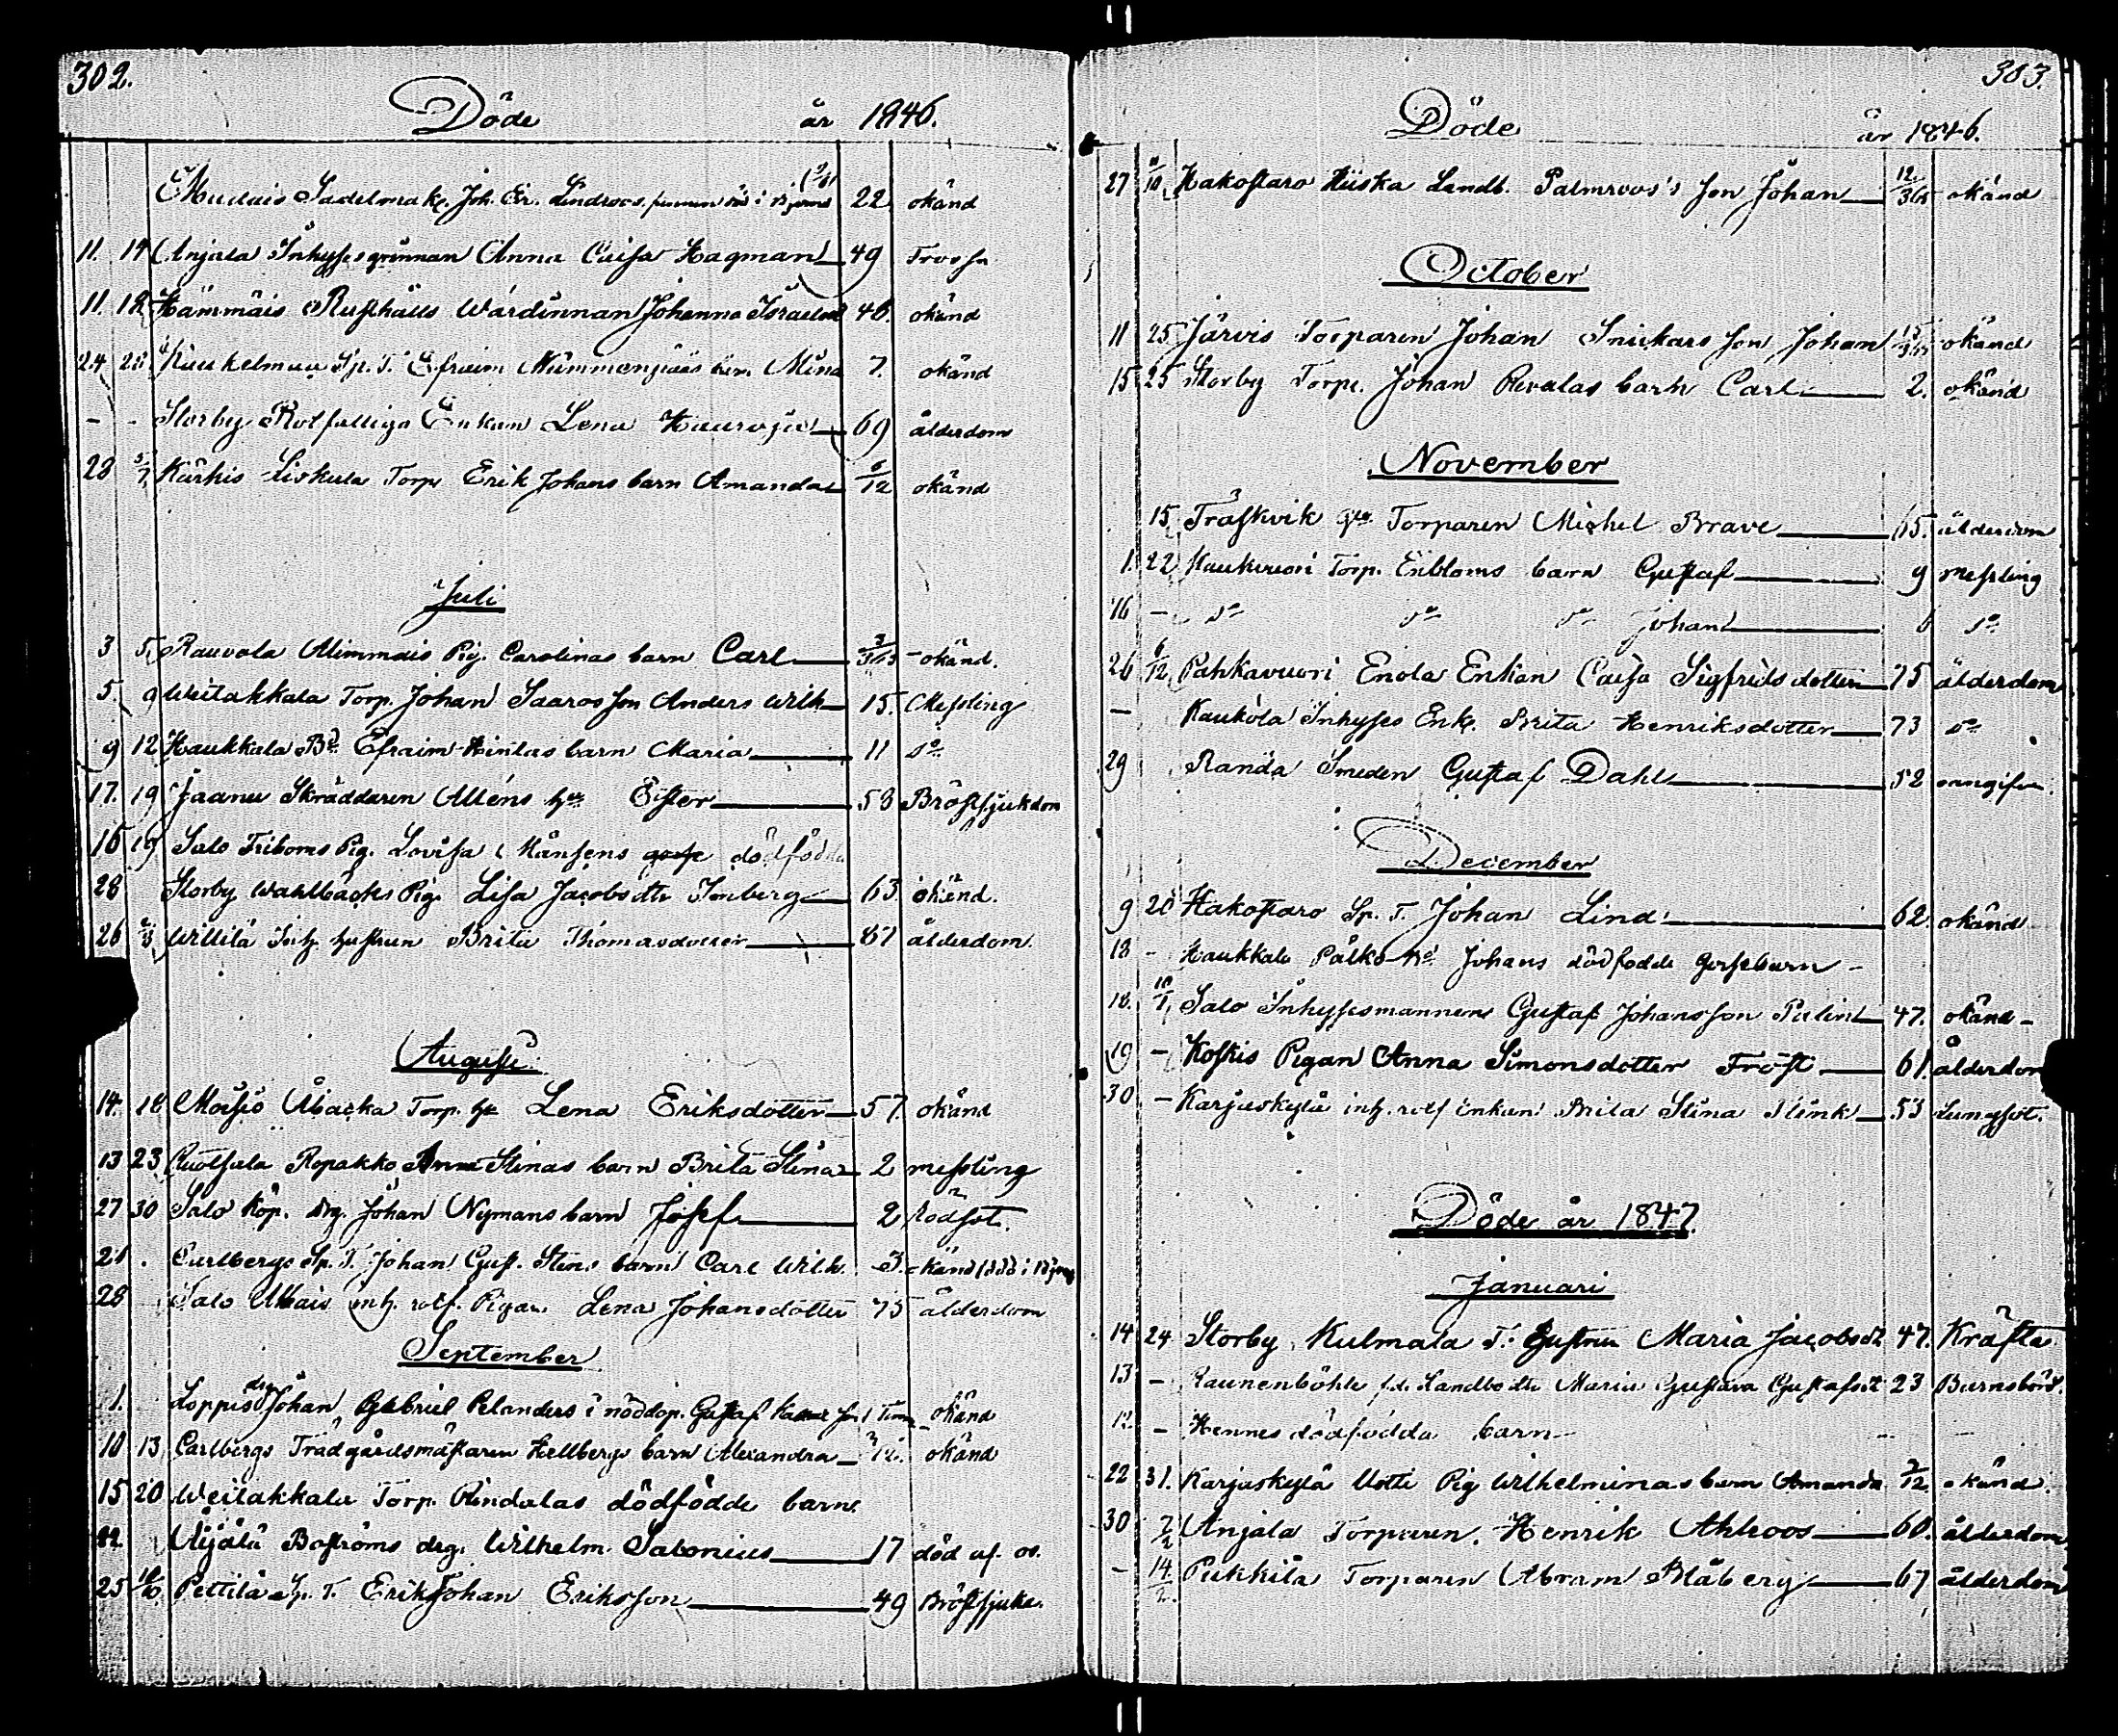 302.
Döde år 1846.
Sadelmak. Joh. Er. Lindroos 22 okänd
11. 14 Anjala Inhyses qvinnan Anna Caisa Hagman 49 Trossn
11. 18 Hämmäis Rusthålls Wärdinnan Johanna Israelsd 46. okänd
24 28 Sp. T. Efraim barn Mina 7. okänd
- - Storby Rotfattiga Enkan Lena 69 ålderdom
28 5/7 Kärkis Liskula Torp. Erik Johans barn Amanda 6/12 okänd
Juli
3 5 Rauvola Mimmais Pig. Carolinas barn Carl 3/365 okänd.
5. 9 Weitakkala Torp. Johan Saaros son Anders Wilh 15. Messling
9 12 Haukkala Bd. Efraim barn Maria 11 do
17. 19 Jaanu Skräddaren Alléns hu Ester 58 Bröstsjukdom
16 19 Salo Friboms Pig. Lovisa dödfödda
28 Storby Wahlbäcks Pig. Lisa Jacobsdtr 63. okänd.
26 2/8 Willilä Inh. hustrun Brita Thomasdotter 87 ålderdom.
Augusti.
14. 18 Moisio Åbacka Torp. hu Lena Eriksdotter 57. okänd
13 23 Ruotsala Ropakko Anna Stinas barn Brita Stina 2 messling
27 30 Salo Köp. drg. Johan Nymans barn Josef 2 Rödsot.
21 . Carlbergs Sp. T. Johan Gust. Stens barn Carl Wilh. 3. okänd
28 Salo inh. rotf. Pigan Lena Johansdotter 75 ålderdom
September
1. Loppis drg Johan Gabriel Pelanders i nöddop. Gustaf son 1 Tim okänd
10 13 Carlbergs Trädgårdsmästaren Hellbergs barn Alexandra /12. okänd
15 20 Weitakkala Torp. Rindalas dödfödde barn
22 Äijälä Boströms drg. Wilhelm Salonius 17 död af os.
25 18/10 Pettilä Sp. T. Erik Johan Eriksson 49 Bröstsjuka.
303.
Döde år 1846.
27 11/10 Hakostaro Hiiska Landb. Palmroos's son Johan 12/365 okänd
October
11 25 Järvis Torparen Johan Snickars son Johan 15/365 okänd
15 25 Storby Torp. Johan Revalas barn Carl 2. okänd
November
15 Träskvik Torparen Michel Brave 65. ålderdom
1. 22 Kaukvuori Torp. Enbloms barn Gustaf 9 messling
16 - do do do Johan 6 do
26 6/12 Pahkavuori Enola Enkan Caisa Sigfridsdotter 75 ålderdom
- Kaukola Inhyses Enk. Brita Henriksdotter 73 do
29 Randa Smeden Gustaf Dahl 52
December
9 20 Hakostaro Sp. T. Johan Lind 62. okänd
18 - Haukkala Pälkö Johans dödfödde gossebarn -
18. 10/1 Salo Inhysesmannen Gustaf Johansson 47. okänd -
19 - Koskis Pigan Anna Simonsdotter Fröst 61. ålderdom
30 - Karjaskylä inh. rotf Enkan Brita Stina Flink 53 Lungsot.
Döde år 1847.
Januari
14 24 Storby Kulmala T. Hustrun Maria Jacobsdt 47. Kräfta
13 - Raunenböhle Landbodtr Maria Gustava Gustafsdt 23 Barnsbörd.
12. - Hennes dödfödda barn - -
22 31. Karjaskylä Uotti Pig. Wilhelminas barn Amanda 2/12 okänd.
30 7/2 Anjala Torparen Henrik Ahlroos 60. ålderdom
- 14/2. Pukkila Torparen Abram Blåberg 67 ålderdom